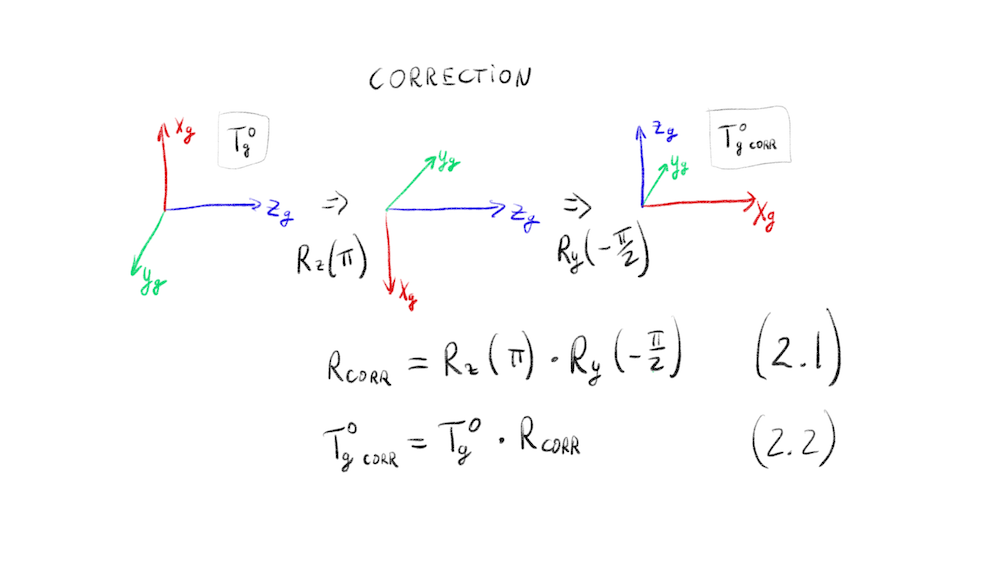 CORRECTION
Xg
T⁰g
Zg
Yg
⇒
Rz(π)
Yg
Zg
Xg
⇒
Ry(-π/2)
Zg
Yg
Xg
T⁰g CORR
RCORR = Rz(π) · Ry(-π/2) (2.1)
T⁰g CORR = T⁰g · RCORR (2.2)